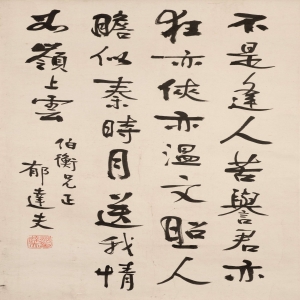 不是逢人苦譽君亦
狂亦俠亦溫文照人
瞻似秦時月送我情
如嶺上雲
伯衡兄正
郁達夫